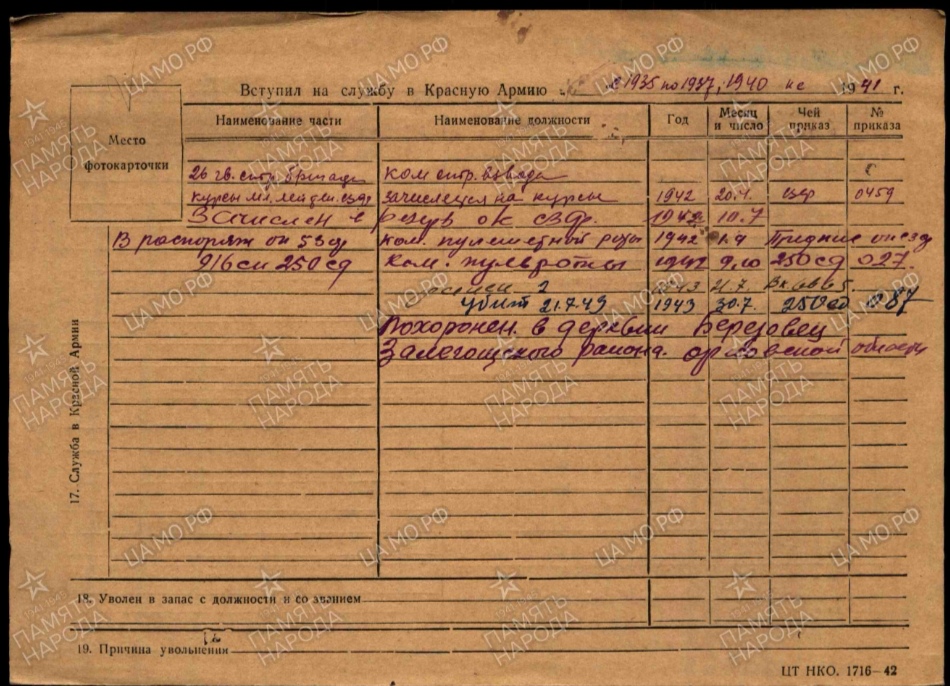 Вступил на службу в Красную Армию с 1935 по 1937, 1940 1941 г.
Место фотокарточки
Наименование части Наименование должности Год Месяц и число Чей приказ № приказа
26 гв. стр. бригада ком стр. взвода
курсы мл. лейт. зачислен на курсы 1942 20.4 сзф 0459
Зачислен в резерв ок сзф. 1942 10.7
В распоряж ок 53 ком. пулеметной роты 1942
916 сп 250 сд ком. пульроты 1942 9.10 250 сд 027.
1943 21.7.
убит 21.7.43 1943 30.7. 250 сд 087
Похоронен в деревни Березовец
Залегощского района. орловской области
17. Служба в Красной Армии
18. Уволен в запас с должности и со званием
19. Причина увольнения
ЦТ НКО. 1716—42
ЦАМО.РФ
ПАМЯТЬ НАРОДА
1941-1945